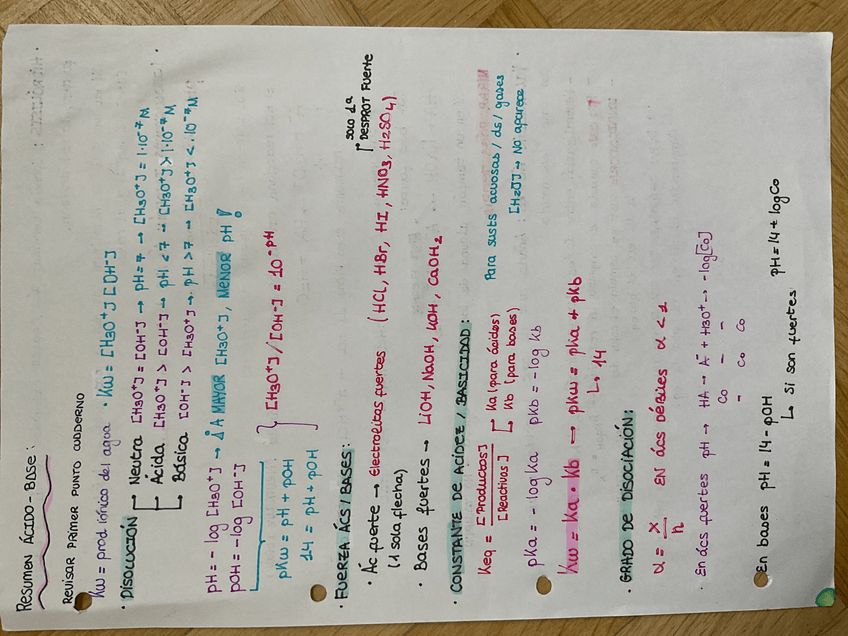 Resumen ÁCIDO-BASE:
REVISAR PRIMER PUNTO CUADERNO
Kw = prod iónico del agua · Kw = [H3O+] [OH-]
· DISOLUCIÓN → Neutra [H3O+] = [OH-] → pH = 7 → [H3O+] = 1·10⁻⁷ M
→ Ácida [H3O+] > [OH-] → pH < 7 → [H3O+] > 1·10⁻⁷ M
→ Básica [OH-] > [H3O+] → pH > 7 → [H3O+] < ·10⁻⁷ M
pH = - log [H3O+] → ¡A MAYOR [H3O+], MENOR pH!
pOH = - log [OH-]
pKw = pH + pOH
14 = pH + pOH
[H3O+]/[OH-] = 10^-pH
· FUERZA ÁCS / BASES:
SOLO 1ª
DESPROT FUERTE
· Ác fuerte → Electrolitos fuertes (HCL, HBr, HI, HNO3, H2SO4)
(1 sola flecha)
· Bases fuertes → LiOH, NaOH, KOH, CaOH2
· CONSTANTE DE ACIDEZ / BASICIDAD:
Keq = [Productos] / [Reactivos] → Ka (para ácidos)
→ Kb (para bases)
Para susts acuosas / ds / gases
[H2O] → No aparece
pKa = - log Ka pKb = - log Kb
Kw = Ka · Kb → pKw = pKa + pKb
↳ 14
· GRADO DE DISOCIACIÓN:
α = x / n EN ÁCS DÉBILES α < 1
· En ács fuertes pH → HA → A- + H3O+ → -log[Co]
Co - -
- Co Co
· En bases pH = 14 - pOH
↳ Si son fuertes pH = 14 + log Co